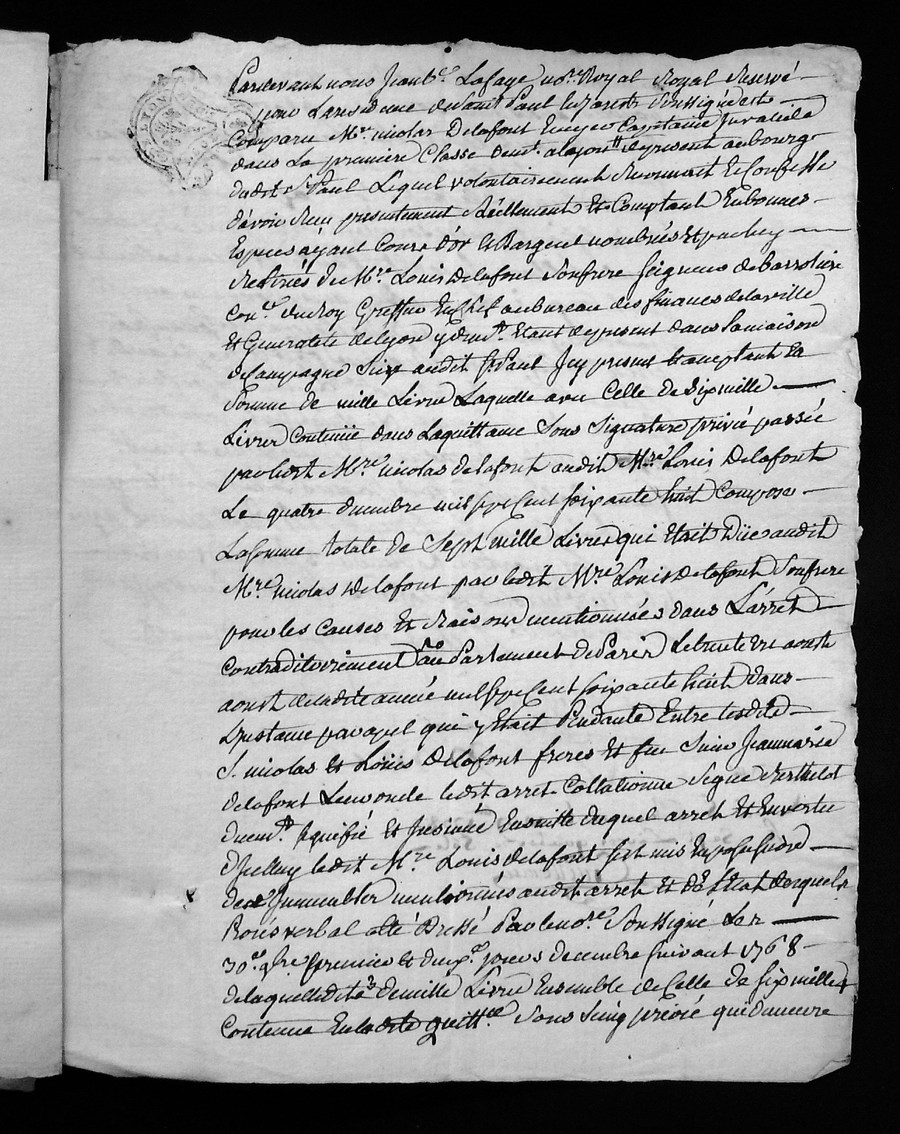 Pardevant nous Jean B.te Lafaye no.re Royal Royal Reservé
pour la residence de Saint Paul en Jarest Soussigné est
Comparu M.re nicolas Delafont Ecuyer Capitaine Invalide
dans La premiere Classe dem.t a lyon et depresent au bourg
dudit S.t Paul Lequel volontairement Reconnait et Confesse
d'avoir Reçu presentement Réellement et Comptant En bonnes
Especes ayant Cours d'or et D'argent nombrés et par luy
Retirés de M.re Louis Delafont Son frere Seigneur de
Con.er du Roy Greffier En Chef au bureau des finances de la ville
Et Generalité de lyon y dem.t Etant depresent dans Sa maison
de Campagne Sise audit S.t Paul Icy present et acceptant La
Somme de mille Livres Laquelle avec Celle de Six mille
Livres Contenüe dans La quittance Sous Signature privée passée
par ledit M.re nicolas delafont audit M.re Louis Delafont
Le quatre decembre mil sept Cent soixante huit Compose
La Somme totale de Sept mille Livres qui Etait Düe audit
M.re nicolas Delafont par ledit M.re Louis Delafont Son frere
pour les Causes Et Raisons mentionnées dans L'arret
Contradictoirement au Parlement de Paris Le trente un
aoust de ladite année mil sept Cent soixante huit dans
L'Instance par apel qui y Etait Pendante Entre lesdits
S. nicolas Et Louis Delafont freres Et feu Sieur Jean marie
delafont Leur oncle ledit arret Collationné Signé Berthelot
düement Signifié Et Insinué Ensuitte duquel arret Et En vertu
d'Icelluy ledit M.re Louis delafont fut mis En possession
des Immeubles mentionnés audit arret Et de l'Etat desquels
Procés verbal a été Dressé Par le no.re Soussigné Les
30.e 9bre premier Et deux.e jours decembre Suivant 1768
de laquelle dite S.e de mille Livres Ensemble de Celle de Six mille
Contenue En ladite quitt.ce Sous Seing privé qui demeure